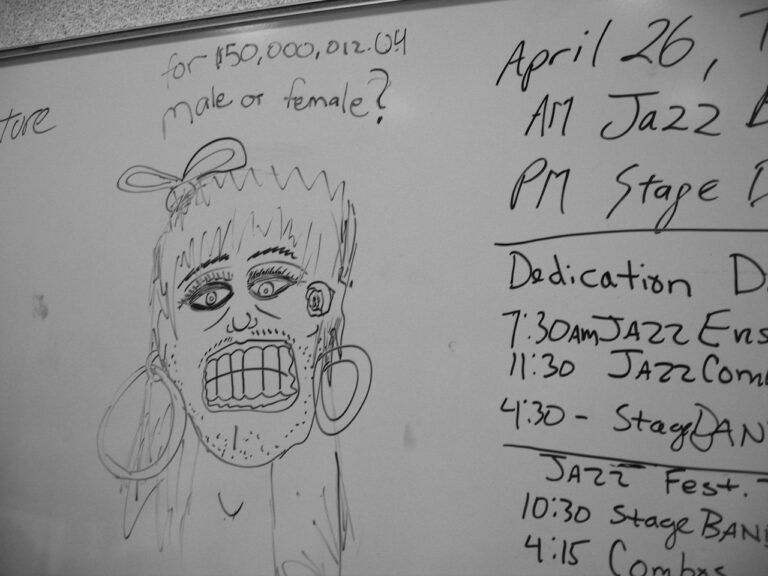 for $50,000,012.04
male or female?
April 26,
AM Jazz
PM Stage
Dedication
7:30AM JAZZ
11:30 JAZZ
4:30 - Stage
JAZZ Fest.
10:30 Stage BAND
4:15 Combos